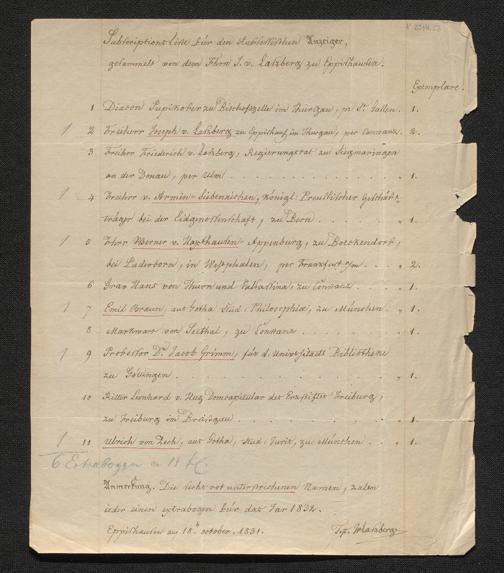 Subscriptions Liste für den Aufsessischen Anzeiger,
gesammelt von dem Fhrn J. v. Laszberg zu Eppishausen.
Exemplare.
1 Diacon Pupikofer zu Bischofszelle im Thurgau, pr St. Gallen. 1.
2 Freiherr Joseph v. Laszberg zu Eppishausen im Thurgau, per Constanz. 2.
3 Freiherr Friederich v. Laszberg, Regierungsrat zu Siegmaringen
an der Donau, per Ulm . . . 1.
4 Freiherr v. Arnim, Königl. Preussischer Geschäft-
träger bei der Eidgnossenschaft, zu Bern . . . 1.
5 Fhrr Werner v. Haxthausen-Appenburg, zu Boeckendorf,
bei Paderborn, in Westphalen, per Frankfurt a/m . . . 2.
6 Grav Hans von Thurn und Valsassina, zu Constanz . . . 1.
7 Emil Braun, aus Gotha Stud. Philosophiae, zu München . 1.
8 Markwart von Seethal, zu Constanz . . . 1.
9 Professor Dr. Jacob Grimm, für d. Universitaets Bibliothek
zu Göttingen . . . 1.
10 Ritter Leonhard v. Hug Domcapitular des Erzstiftes Freiburg,
zu Freiburg im Breisgau . . . 1.
11 Ulrich von Zech, aus Gotha, Stud. Juris, zu München . . . 1.
6 Extrabogen
Anmerkung. Die sechs rot unterstrichenen Namen, zalen
ieder einen extrabogen für das Jar 1832.
Eppishausen am 18n october. 1831.
JvLaszberg